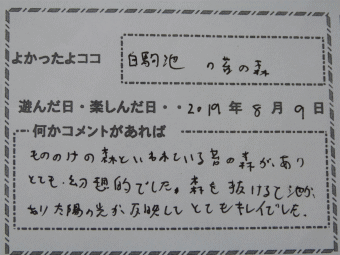 よかったよココ
白駒池 の苔の森
遊んだ日・楽しんだ日・・2019年8月9日
何かコメントがあれば
もののけの森といわれいる苔の森があり
とても幻想的でした。森を抜けると池が
あり太陽の光が反映してとてもキレイでした。